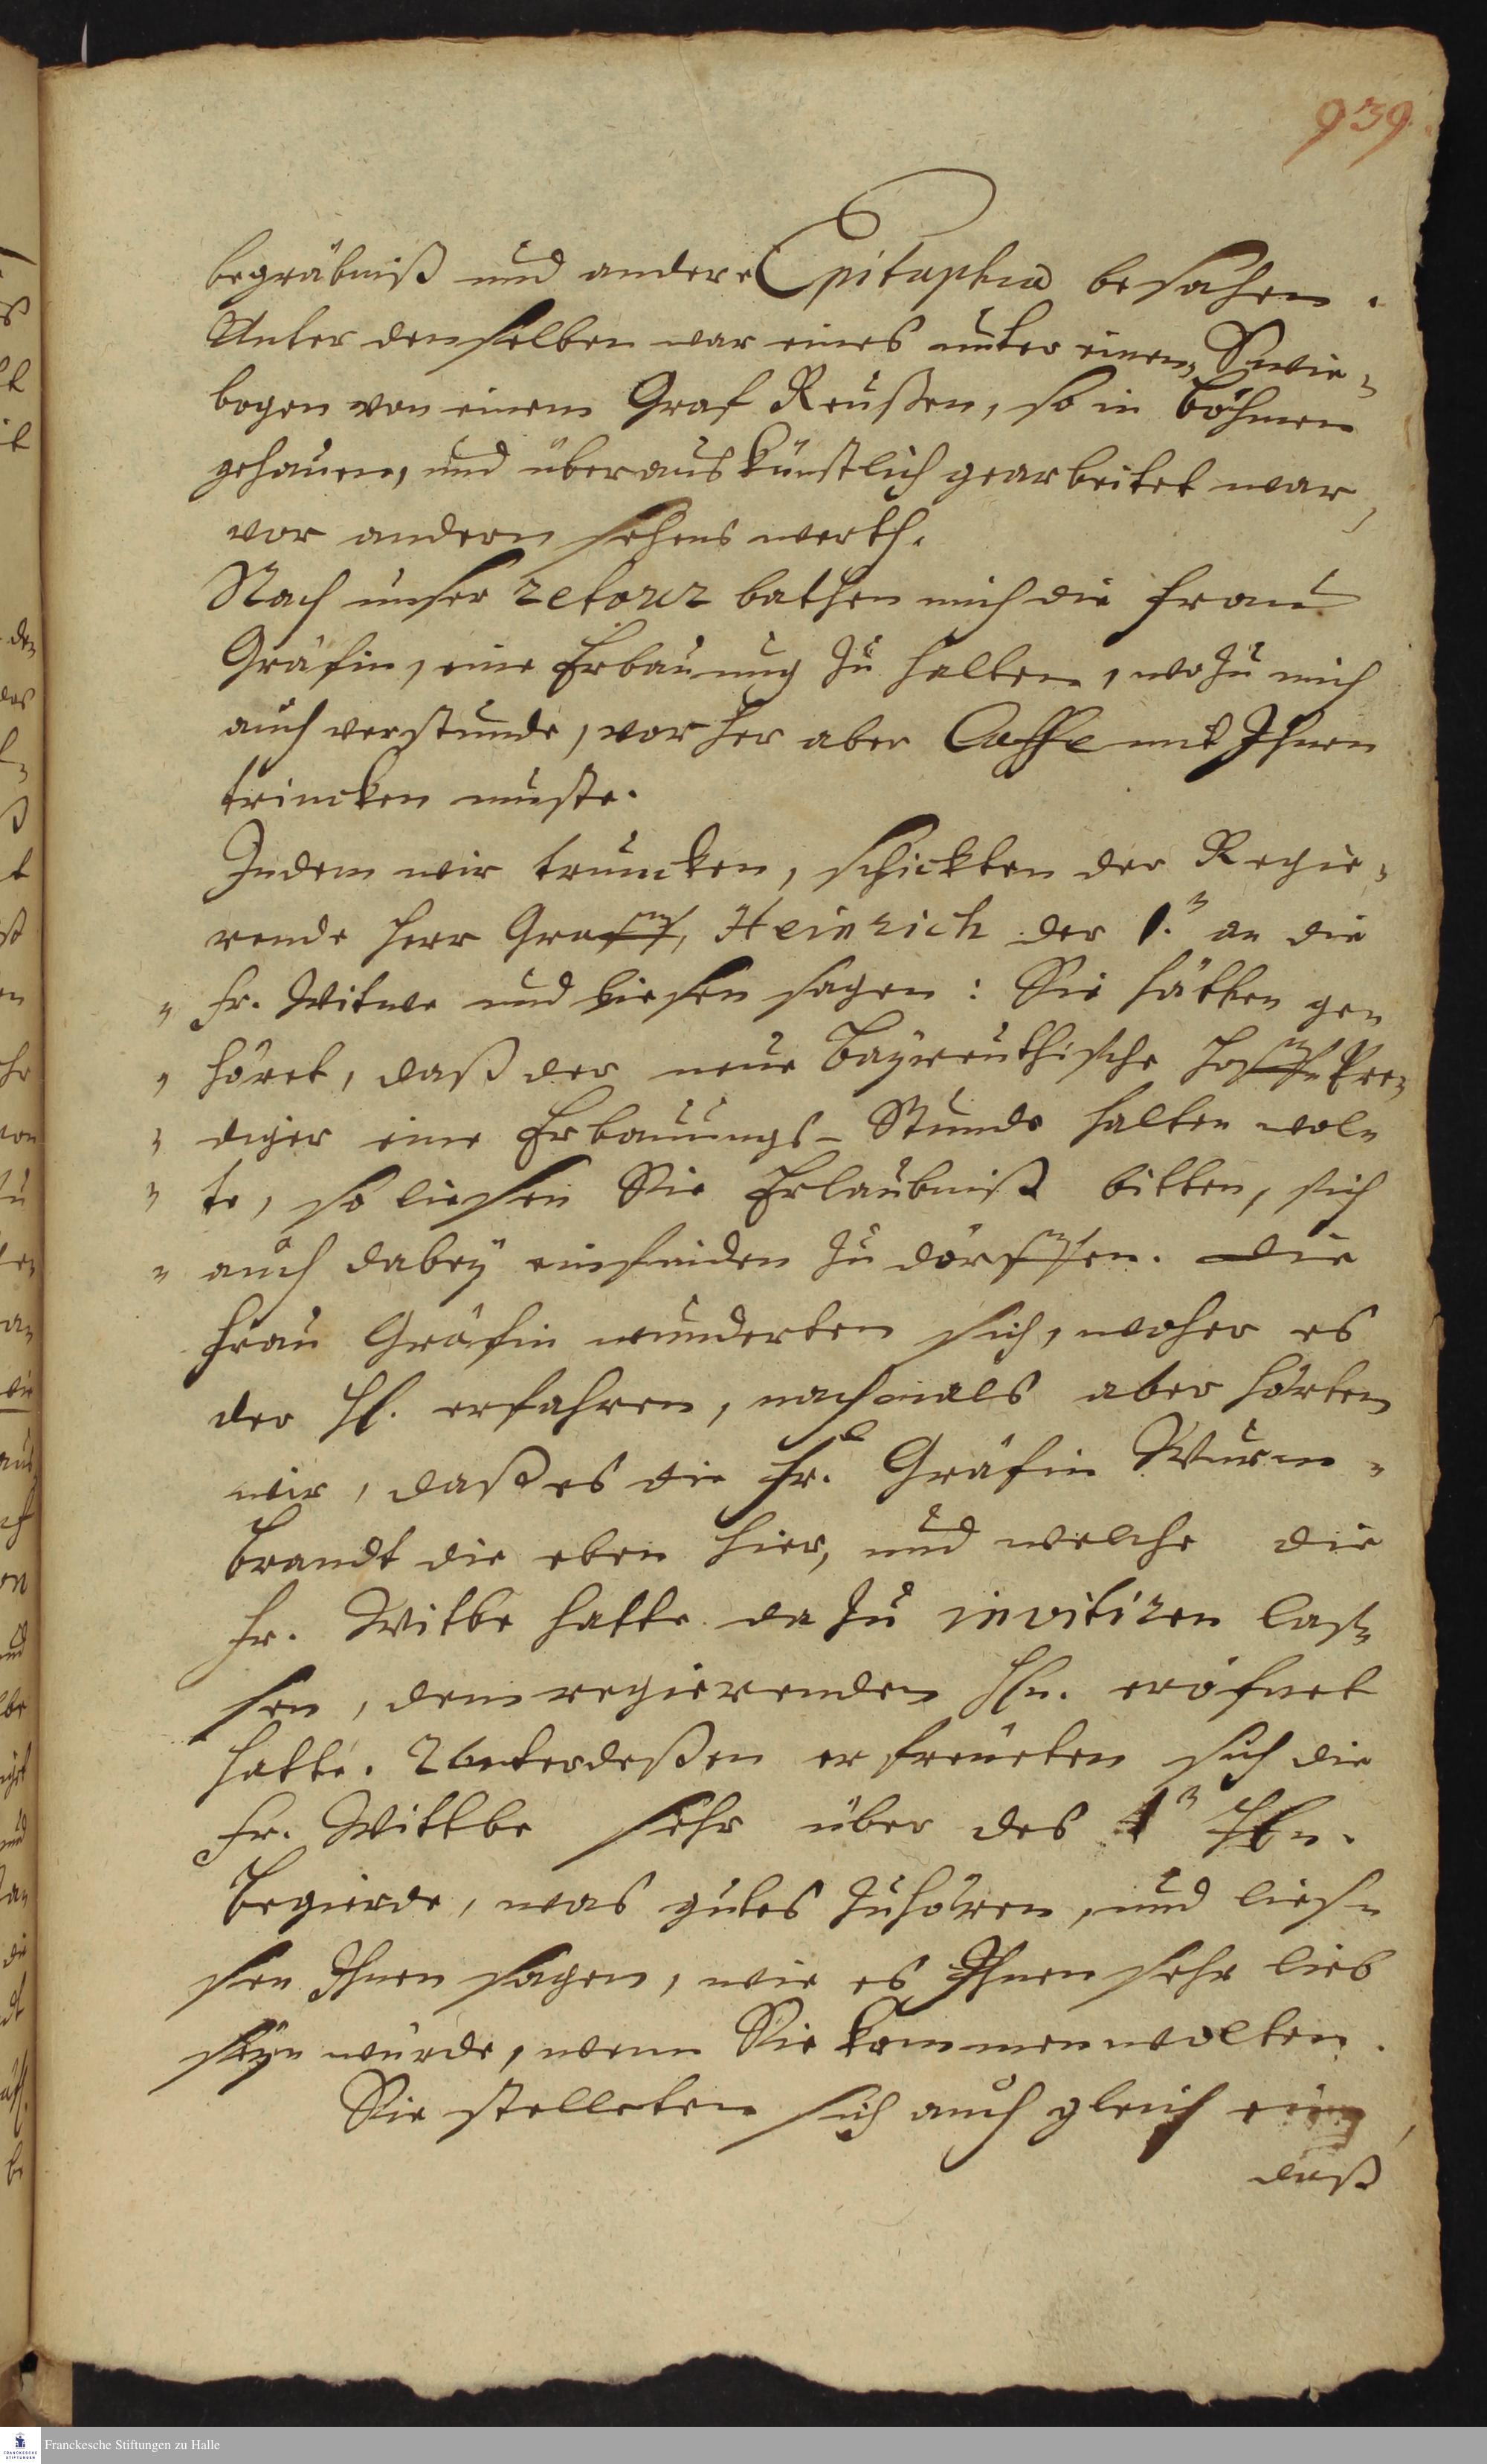 939.
begräbniß und andere Epitaphia besahen.
Unter denselben war eines unter einem Swie-
bogen von einem Graf Reußen, so in Böhmen
gehauen, und überaus künstlich gearbeitet war,
vor andern sehens werth.
Nach unser retour bathen mich die Frau
Gräfin, eine Erbauung zu halten, wozu mich
auch verstunde, vorher aber Caffe mit Ihnen
trincken muste.
Indem wir truncken, schickten der Regie-
rende Herr Graff, Heinrich der 1. an die
" Fr. Witwe und liesen sagen: Sie hätten ge-
" höret, daß der neue Bayreuthische Hoff-Pre-
" diger eine Erbauungs-Stunde halten wol-
" te, so liesen Sie Erlaubniß bitten, sich
" auch dabey einfinden zu dörffen. Die
Frau Gräfin wunderten sich, woher es
der H. erfahren, nachmals aber hörten
wir, daß es die Fr. Gräfin Wurm-
brandt die eben hier, und welche die
Fr. Witbe hatte dazu invitiren laß-
sen, dem regierenden Hn. eröfnet
hatte. Unterdeßen erfreueten sich die
Fr. Wittbe sehr über des 1 Hn.
Begierde, was gutes zuhören, und lies-
sen Ihnen sagen, wie es Ihnen sehr lieb
seyn würde, wenn Sie kommen wolten.
Sie stelleten sich auch gleich ein,
daß
Franckesche Stiftungen zu Halle